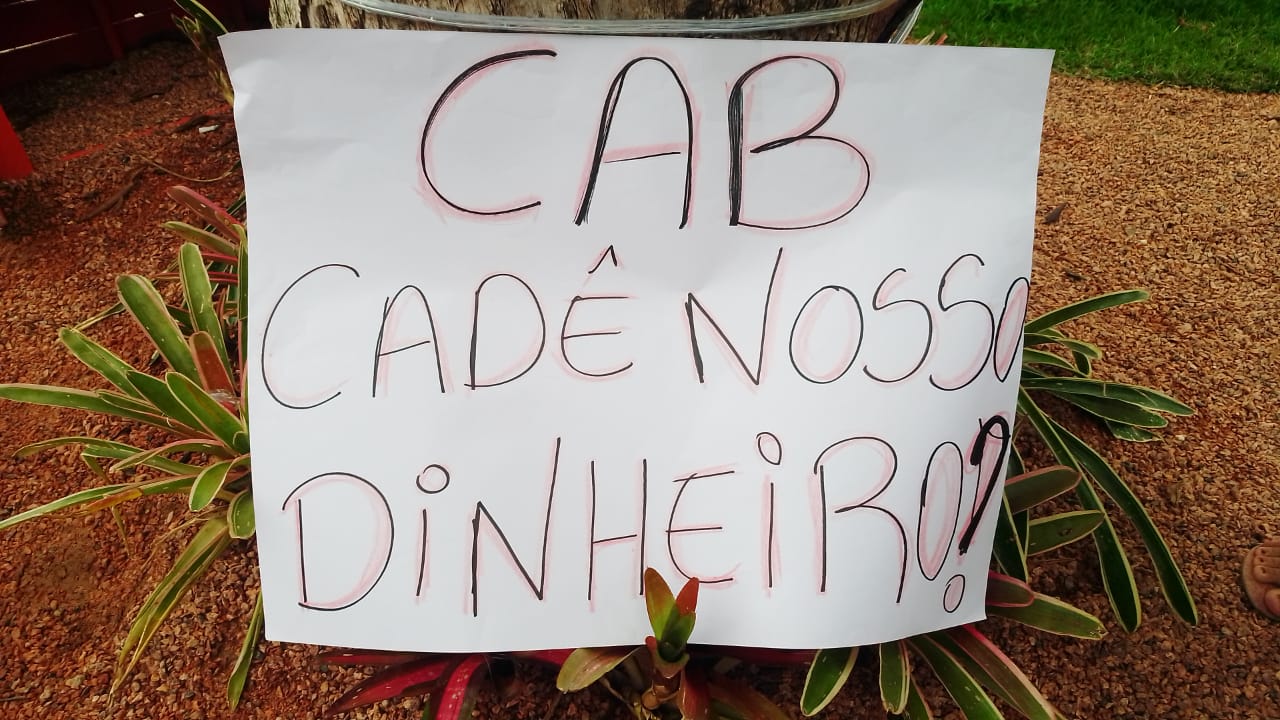 CAB
CADÊ NOSSO
DiNHEiRO?